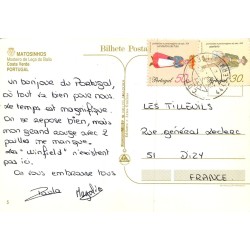 MATOSINHOS
Mosteiro de Leça do Balio
Costa Verde
PORTUGAL
Bilhete Posta
Portugal 50
Portugal 30
un bonjour du Portugal,
où tout va bien pour nous
Le temps est magnifique.
On se repose bien, mais
mon grand rouge avec 2
pailles me manque.
Le "Winfield" n'existent
pas ici.
On vous embrasse tous
Paula
LES TILLEULS
Rue général Leclerc
51
FRANCE